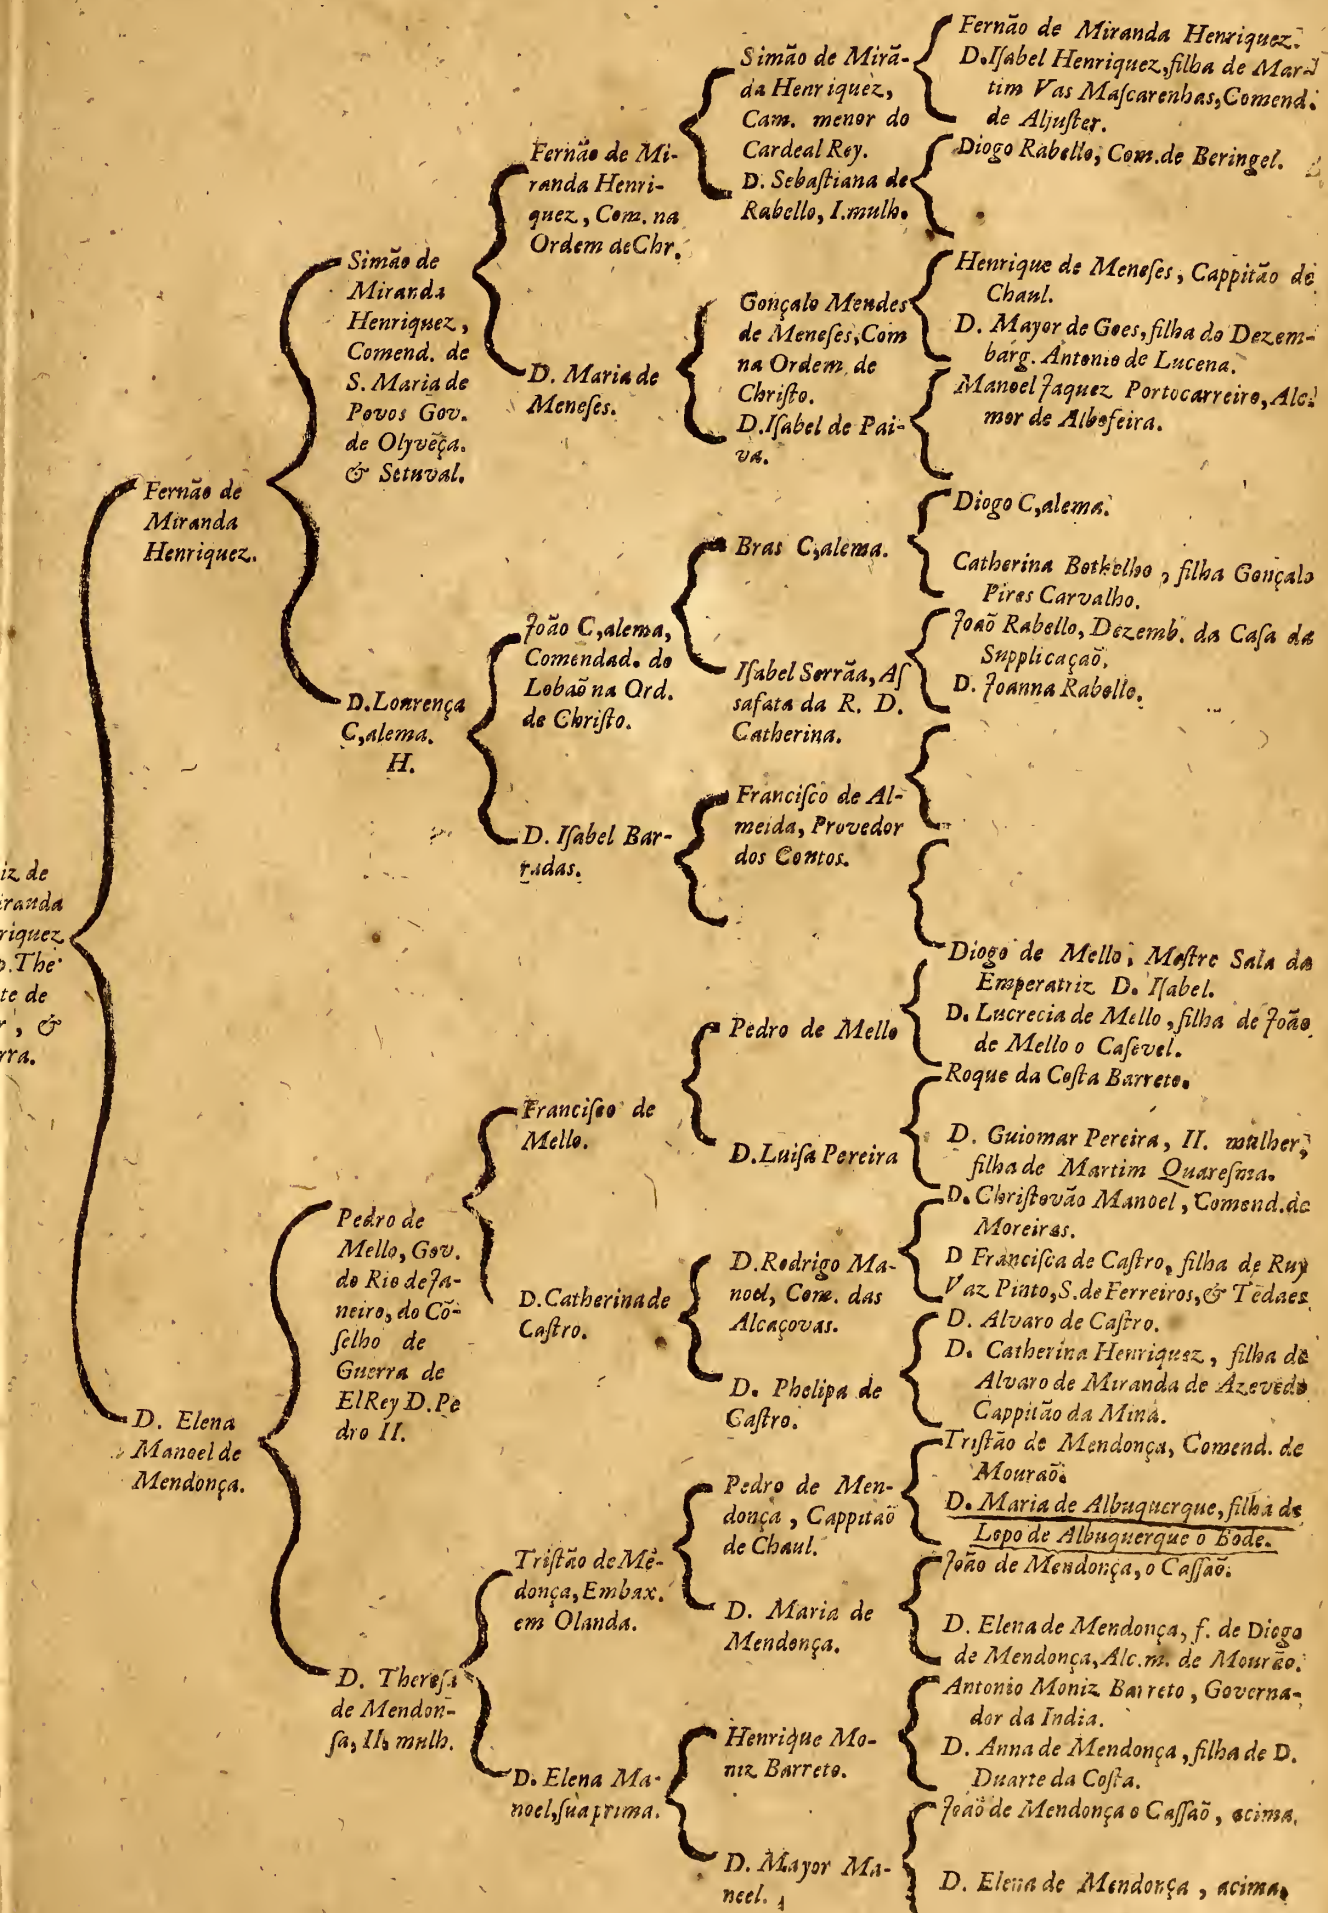 iz de
iranda
riquez
o. The
te de
r, &
rra.
Fernão de
Miranda
Henriquez.
D. Elena
Manoel de
Mendonça.
Simão de
Miranda
Henriquez,
Comend. de
S. Maria de
Povos Gov.
de Olyvẽça.
& Setuval.
D. Lourença
C,alema.
H.
Pedro de
Mello, Gov.
do Rio de Ja-
neiro, do Cõ-
ſelho de
Guerra de
ElRey D. Pe
dro II.
D. Thereſa
de Mendon-
ſa, II. mulh.
Fernão de Mi-
randa Henri-
quez, Com. na
Ordem de Chr.
D. Maria de
Meneſes.
João C,alema,
Comendad. do
Lobaõ na Ord.
de Chriſto.
D. Iſabel Bar-
radas.
Franciſco de
Mello.
D. Catherina de
Caſtro.
Triſtão de Mẽ-
donça, Embax.
em Olanda.
D. Elena Ma-
noel, ſua prima.
Simão de Mirã-
da Henriquez,
Cam. menor do
Cardeal Rey.
D. Sebaſtiana de
Rabello, I. mulh.
Gonçalo Mendes
de Meneſes, Com
na Ordem de
Chriſto.
D. Iſabel de Pai-
va.
Bras C,alema.
Iſabel Serrãa, Aſ
ſafata da R. D.
Catherina.
Franciſco de Al-
meida, Provedor
dos Contos.
Pedro de Mello
D. Luiſa Pereira
D. Rodrigo Ma-
noel, Com. das
Alcaçovas.
D. Phelipa de
Caſtro.
Pedro de Men-
donça, Cappitaõ
de Chaul.
D. Maria de
Mendonça.
Henrique Mo-
niz Barreto.
D. Mayor Ma-
noel.
Fernão de Miranda Henriquez.
D. Iſabel Henriquez, filha de Mar-
tim Vas Maſcarenhas, Comend.
de Aljuſter.
Diogo Rabello, Com. de Beringel.
Henrique de Meneſes, Cappitão de
Chaul.
D. Mayor de Goes, filha do Dezem-
barg. Antonio de Lucena.
Manoel Jaquez Portocarreiro, Alc.
mor de Albofeira.
Diogo C,alema.
Catherina Botkelho, filha Gonçalo
Pires Carvalho.
Joaõ Rabello, Dezemb. da Caſa da
Supplicaçaõ.
D. Joanna Rabello.
Diogo de Mello, Meſtre Sala da
Emperatriz D. Iſabel.
D. Lucrecia de Mello, filha de João
de Mello o Caſevel.
Roque da Coſta Barreto.
D. Guiomar Pereira, II. mulher,
filha de Martim Quareſma.
D. Chriſtovão Manoel, Comend. de
Moreiras.
D Franciſca de Caſtro, filha de Ruy
Vaz Pinto, S. de Ferreiros, & Tẽdaes
D. Alvaro de Caſtro.
D. Catherina Henriquez, filha de
Alvaro de Miranda de Azevedo
Cappitão da Mina.
Triſtão de Mendonça, Comend. de
Mouraõ.
D. Maria de Albuquerque, filha de
Lopo de Albuquerque o Bode.
João de Mendonça, o Caſſaõ.
D. Elena de Mendonça, f. de Diogo
de Mendonça, Alc. m. de Mourão.
Antonio Moniz Barreto, Governa-
dor da India.
D. Anna de Mendonça, filha de D.
Duarte da Coſta.
Joaõ de Mendonça o Caſſaõ, acima.
D. Elena de Mendonça, acima.